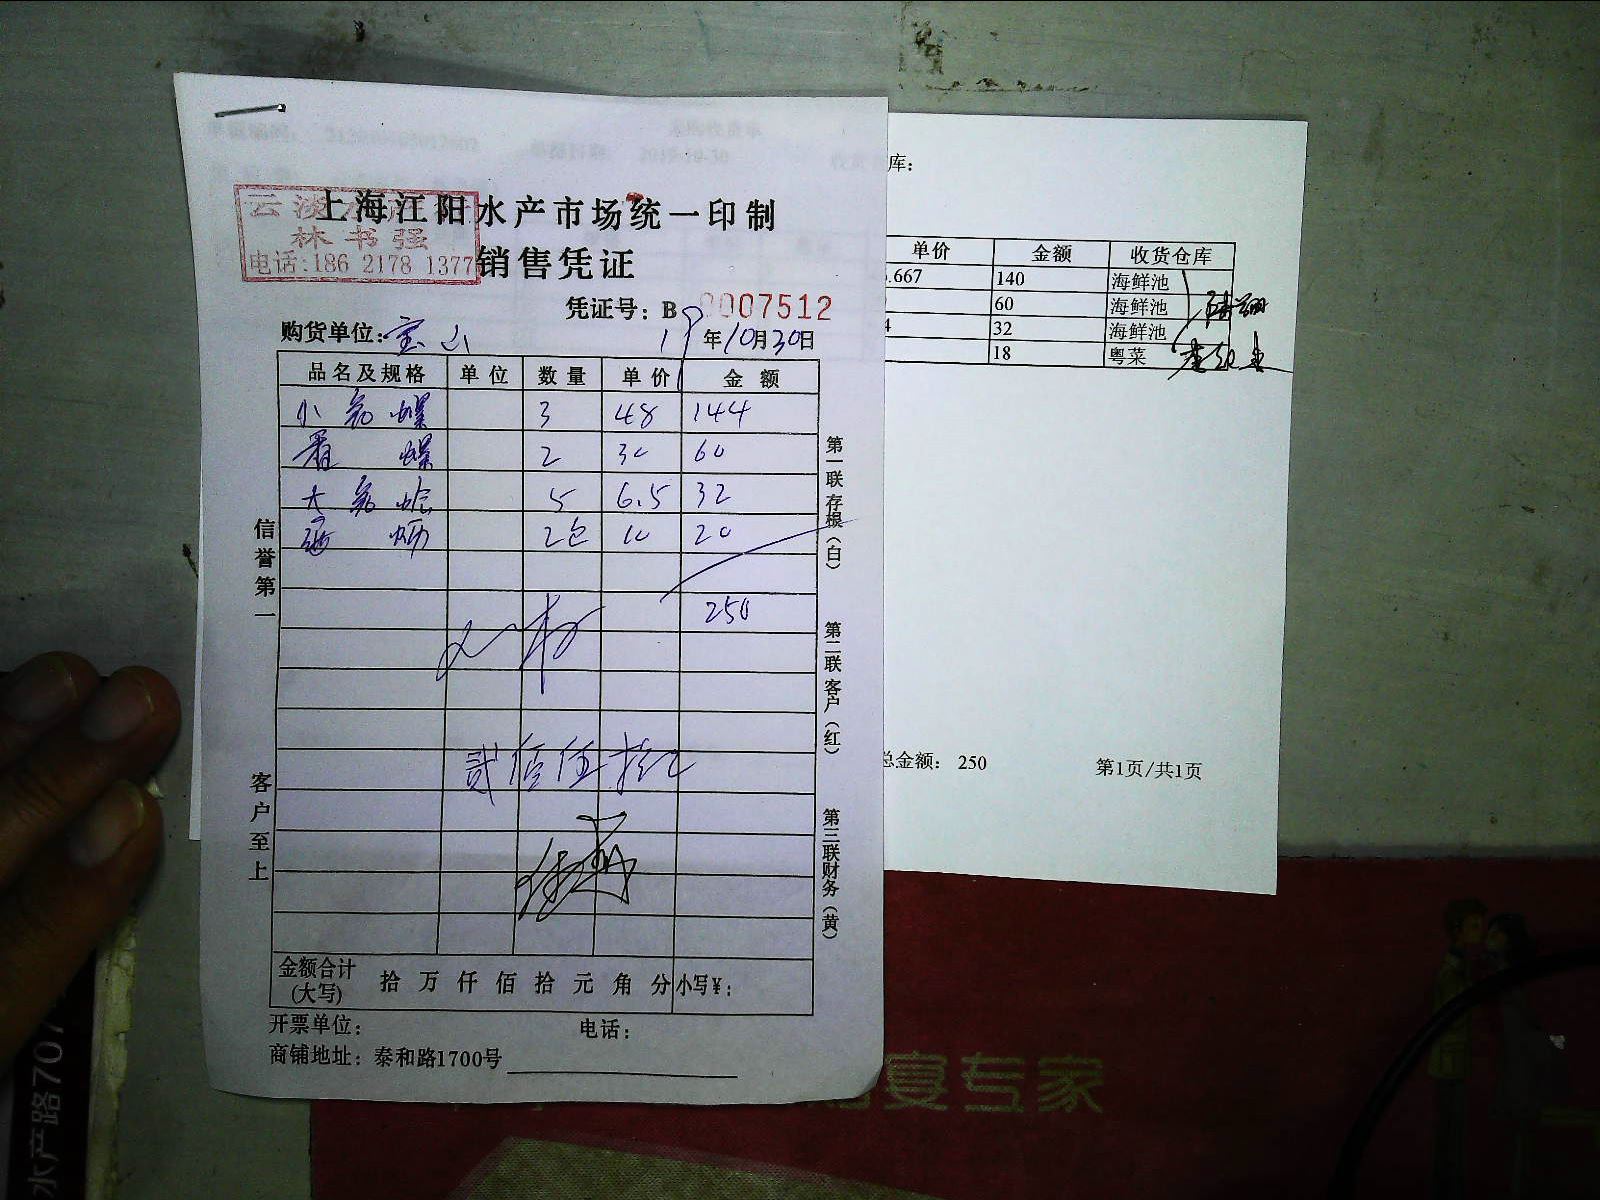 上海江阳水产市场统一印制
林书强
电话:186 2178 1377
销售凭证
凭证号：B 0007512
购货单位:宝山 19年10月30日
品名及规格 单位 数量 单价 金额
小 螺 3 48 144
螺 2 30 60
大 蛤 5 6.5 32
2包 10 20
250
贰佰伍拾元
金额合计(大写) 拾 万 仟 佰 拾 元 角 分 小写¥：
开票单位： 电话：
商铺地址：泰和路1700号
信誉第一
客户至上
第一联存根（白）
第二联客户（红）
第三联财务（黄）
库：
单价 金额 收货仓库
.667 140 海鲜池
60 海鲜池
4 32 海鲜池
18 粤菜
总金额： 250 第1页/共1页
宴专家
水产路707